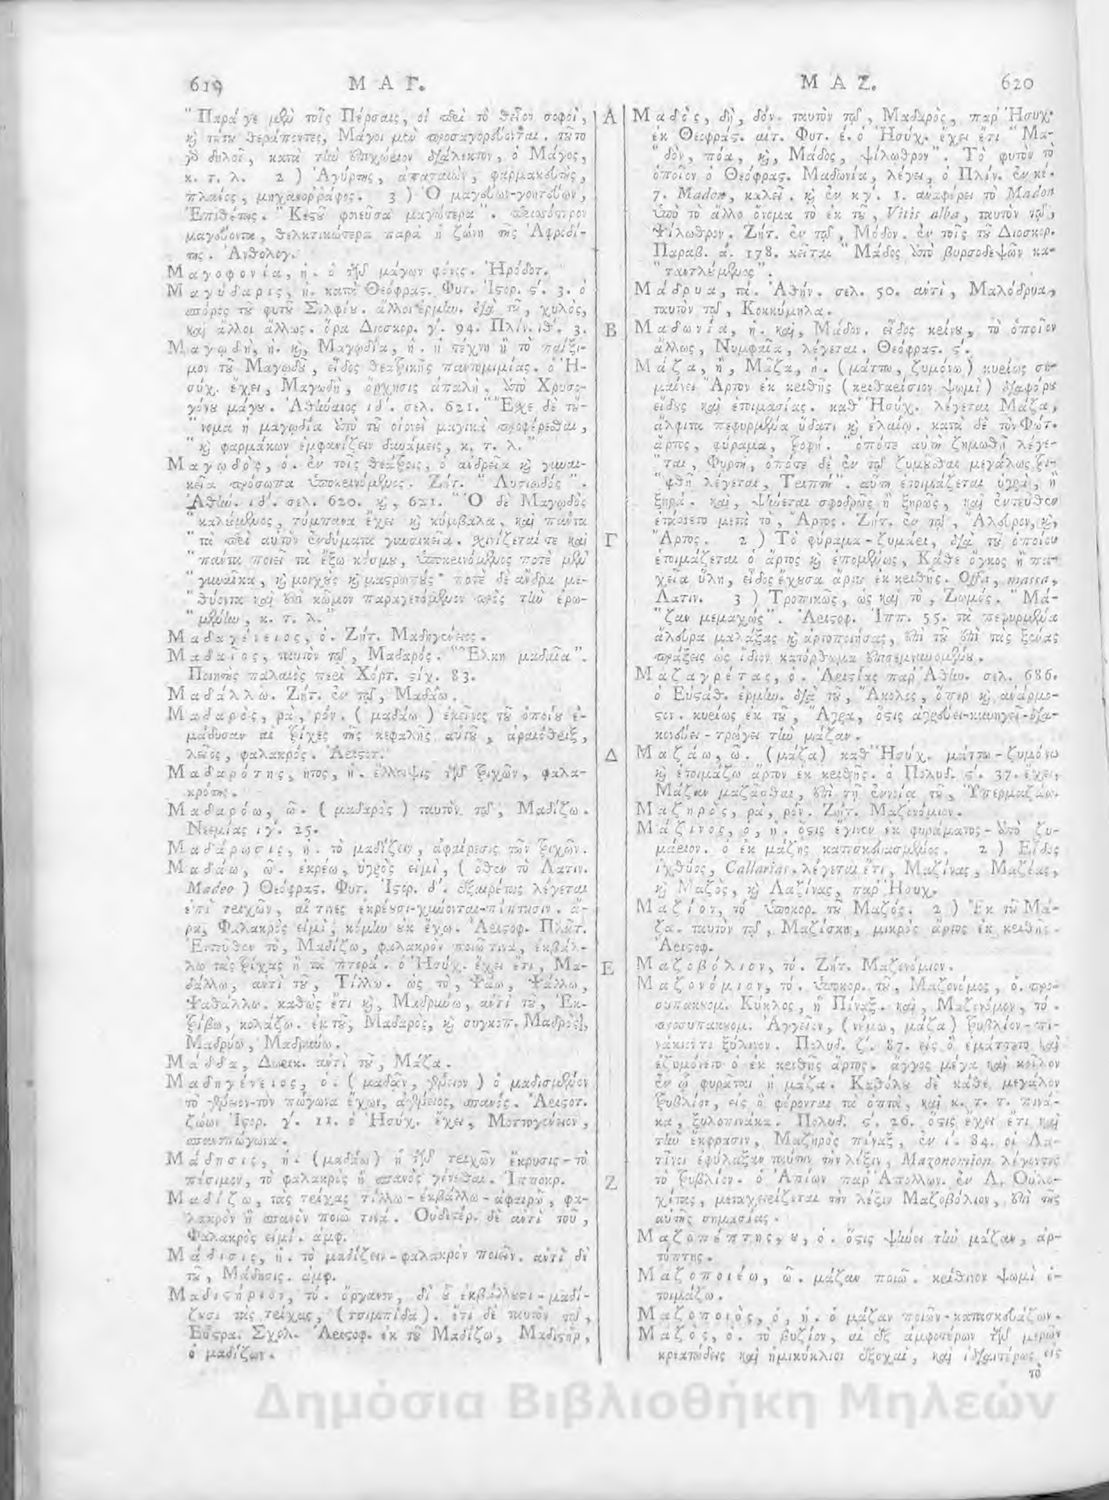 619 ΜΑΓ.
"Παρά γε μὲν τοῖς Πέρσαις, οἱ περὶ τὸ θεῖον σοφοὶ,
καὶ τούτου θεράποντες, Μάγοι μὲν προσαγορεύονται. τοῦτο
γὰρ δηλοῖ, κατὰ τὴν ἐπιχώριον διάλεκτον, ὁ Μάγος,
κ. τ. λ. 2) Ἀγύρτης, ἀπαταιὼν, φαρμακευτὴς,
πλαίος, μηχανορράφος. 3) Ὁ μαγεύων-γοητεύων,
Ἐπιθέτης. "Κεστοῦ φωνεῦσα μαγώτερα". περισσότερον
μαγεύοντα, θελκτικώτερα παρὰ ἡ ζώνη τῆς Ἀφροδί-
της. Ἀνθολογ.
Μαγοφονία, ἡ. ὁ τῶν μάγων φόνος. Ἡρόδοτ.
Μαγύδαρις, ἡ. κατὰ Θεόφρας. Φυτ. Ἱςορ. ς'. 3. ὁ
σπόρος τοῦ φυτοῦ Σιλφίου. ἄλλοι ἑρμην. διὰ τοῦ, χυλὸς,
καὶ ἄλλοι ἄλλως. ὅρα Διοσκορ. γ'. 94. Πλίν. ιθ'. 3.
Μαγῳδὴ, ἡ. καὶ, Μαγῳδία, ἡ. ἡ τέχνη ἢ τὸ παίξι-
μον τοῦ Μαγῳδοῦ, εἶδος θεατρικῆς παντομιμίας. ὁ Ἡ-
σύχ. ἔχει, Μαγωδὴ, ὄρχησις ἁπαλή. ὑπὸ Χρυσο-
γόνου μάγου. Ἀθήναιος ιδ'. σελ. 621. "Ἔσχε δὲ τοὔ-
"νομα ἡ μαγῳδία ἀπὸ τοῦ οἱονεὶ μαγικὰ προφέρεσθαι,
"καὶ φαρμάκων ἐμφανίζειν δυνάμεις, κ. τ. λ."
Μαγῳδὸς, ὁ. ἐν τοῖς θεάτροις, ὁ ἀνδρεῖα καὶ γυναι-
κεῖα πρόσωπα ὑποκρινόμενος. Ζήτ. "Λυσιῳδός".
Ἀθήν. ιδ'. σελ. 620. καὶ, 621. "Ὁ δὲ Μαγῳδὸς
"καλούμενος, τύμπανα ἔχει καὶ κύμβαλα, καὶ πάντα
"τὰ περὶ αὐτὸν ἐνδύματα γυναικεῖα. σχινίζεταί τε καὶ
"πάντα ποιεῖ τὰ ἔξω κόσμου, ὑποκρινόμενος ποτὲ μὲν
"γυναῖκα, καὶ μοιχοὺς καὶ μαςρωποὺς· ποτὲ δὲ ἄνδρα με-
"θύοντα καὶ ἐπὶ κῶμον παραγενόμενον πρὸς τὴν ἐρω-
"μένην, κ. τ. λ."
Μαδαγένειος, ὁ. Ζήτ. Μαδηγένειος.
Μαδαῖος, ταυτὸν τῷ, Μαδαρός. "Ἕλκη μαδαῖα".
Ποιητὴς παλαιὸς περὶ Χόρτ. ςίχ. 83.
Μαδάλλω. Ζήτ. ἐν τῷ, Μαδάω.
Μαδαρὸς, ρὰ, ρόν. (μαδάω) ἐκεῖνος τοῦ ὁποίου ἐ-
μάδυσαν αἱ τρίχες τῆς κεφαλῆς αὐτοῦ, ἀραιόθριξ,
λεῖος, φαλακρός. Ἀριςοτ.
Μαδαρότης, ητος, ἡ. ἔλλειψις τῶν τριχῶν, φαλα-
κρότης.
Μαδαρόω, ῶ. (μαδαρὸς) ταυτὸν τῷ, Μαδίζω.
Νεεμίας ιγ'. 25.
Μαδάρωσις, ἡ. τὸ μαδίζειν, ἀφαίρεσις τῶν τριχῶν.
Μαδάω, ῶ. ἐκρέω, ὑγρὸς εἰμὶ, (ὅθεν τὸ Λατιν.
Madeo) Θεόφρας. Φυτ. Ἱςορ. δ'. ἐξαιρέτως λέγεται
ἐπὶ τριχῶν, αἵ τινες ἐκρέουσι-χύνονται-πίπτουσιν. ἄ-
ρα, Φαλακρὸς εἰμὶ, κόμην οὐκ ἔχω. Ἀριςοφ. Πλάτ.
Ἐντεῦθεν τὸ, Μαδίζω, φαλακρὸν ποιῶ τινὰ, ἐκβάλ-
λω τὰς τρίχας ἢ τὰ πτερά. ὁ Ἡσύχ. ἔχει ἔτι, Μα-
δάλλω, ἀντὶ τοῦ, Τίλλω. ὡς τὸ, Ψάω, Ψάλλω,
Ψαθάλλω. καθὼς ἔτι καὶ, Μαδρυάω, ἀντὶ τοῦ, Ἐκ-
τρίβω, κολάζω. ἐκ τοῦ, Μαδαρὸς, καὶ συγκοπ. Μαδρὸς,
Μαδρύω, Μαδρυάω.
Μάδδα, Δωρικ. ἀντὶ τοῦ, Μάζα.
Μαδηγένειος, ὁ. (μαδᾷν, γένειον) ὁ μαδισμένον
τὸ γένειον-τὸν πώγωνα ἔχων, ἀγένειος, σπανός. Ἀριςοτ.
ζώων Ἱςορ. γ'. 11. ὁ Ἡσύχ. ἔχει, Μοττογένειον,
σπανοπώγωνα.
Μάδησις, ἡ. (μαδάω) ἡ τῶν τριχῶν ἔκρυσις-τὸ
πέσιμον, τὸ φαλακρὸς ἢ σπανὸς γενέσθαι. Ἱπποκρ.
Μαδίζω, τὰς τρίχας τίλλω-ἐκβάλλω-ἀφαιρῶ, φα-
λακρὸν ἢ σπανὸν ποιῶ τινά. Οὐδετέρ. δὲ ἀντὶ τοῦ,
Φαλακρὸς εἰμί. ἀμφ.
Μάδισις, ἡ. τὸ μαδίζειν-φαλακρὸν ποιεῖν. ἀντὶ δὲ
τοῦ, Μάδησις. ἀμφ.
Μαδιςήριον, τό. ὄργανον, δι' οὗ ἐκβάλλουσι-μαδί-
ζουσι τὰς τρίχας, (τσιμπίδα). ἔτι δὲ ταυτὸν τῷ,
Εὔςρα. Σχολ. Ἀριςοφ. ἐκ τοῦ Μαδίζω, Μαδιςὴρ,
ὁ μαδίζων.
Α
Β
Γ
Δ
Ε
Ζ
ΜΑΖ. 620
Μαδὸς, δὴ, δόν. ταυτὸν τῷ, Μαδαρὸς, παρ' Ἡσυχ.
ἐκ Θεοφράς. αἰτ. Φυτ. έ. ὁ Ἡσύχ. ἔχει ἔτι "Μα-
"δὸν, πόα, καὶ, Μάδος, ψίλωθρον". Τὸ φυτὸν τὸ
ὁποῖον ὁ Θεόφρας. Μαδωνία, λέγει, ὁ Πλίν. ἐν κέ.
7. Madon, καλεῖ. καὶ ἐν κγ'. 1. ἀναφέρει τὸ Madon
ὑπὸ τὸ ἄλλο ὄνομα τὸ ἐκ τοῦ, Vitis alba, ταυτὸν τῷ,
Ψίλωθρον. Ζήτ. ἐν τῷ, Μόδον. ἐν τοῖς τοῦ Διοσκορ.
Παραβ. ά. 178. κεῖται "Μάδος ὑπὸ βυρσοδεψῶν κα-
"ταντλούμενος".
Μάδρυα, τά. Ἀθήν. σελ. 50. ἀντὶ, Μαλόδρυα,
ταυτὸν τῷ, Κοκκύμηλα.
Μαδωνία, ἡ. καὶ, Μάδον. εἶδος κρίνου, τὸ ὁποῖον
ἄλλως, Νυμφαῖα, λέγεται. Θεόφρας. ς'.
Μάζα, ἡ, Μᾶζα, ἡ. (μάττω, ζυμόνω) κυρίως ση-
μαίνει Ἄρτον ἐκ κριθῆς (κριθαείσιον ψωμὶ) διαφόρου
εἴδους καὶ ἑτοιμασίας. καθ' Ἡσύχ. λέγεται Μάζα,
ἄλφιτα πεφυρμένα ὕδατι καὶ ἐλαίῳ. κατὰ δὲ τὸν Φώτ.
ἄρτος, φύραμα, τροφή. "ὁπότε αὕτη ζημωθῇ λέγε-
"ται, Φυρτὴ, ὁπότε δὲ ἐν τῷ ζυμοῦσθαι μεγάλως τρι-
"φθῇ λέγεται, Τριπτή". αὕτη ἑτοιμάζεται ὑγρὰ, ἢ
ξηρά. καὶ, Ψήνεται σφοδρῶς ἢ ξηρῶς, καὶ ἐντεῦθεν
ἐτρώγετο μετὰ τὸ, Ἄρτος. Ζήτ. ἐν τῷ, Ἄλευρον, καὶ,
Ἄρτος. 2) Τὸ φύραμα-ζυμάρι, διὰ τοῦ ὁποίου
ἑτοιμάζεται ὁ ἄρτος καὶ ἑπομένως, Κάθε ὄγκος ἢ πα-
χεῖα ὕλη, εἶδος ἔχουσα ἄρτου ἐκ κριθῆς. Offa, massa,
Λατιν. 3) Τροπικῶς, ὡς καὶ τὸ, Ζωμός. "Μᾶ-
"ζαν μεμαχώς". Ἀριςοφ. Ἱππ. 55. τὰ πεφυρμένα
ἄλευρα μαλάξας καὶ ἀρτοποιήσας, ἐπὶ τοῦ ἐπὶ τὰς ξένας
πράξεις ὡς ἴδιον κατόρθωμα ἐπισεμνυνομένου.
Μαζαγρέτας, ὁ. Ἀριςίας παρ' Ἀθήν. σελ. 686.
ὁ Εὐςάθ. ἑρμην. διὰ τοῦ, Ἄκολος, ὅπερ καὶ ἀνάρμο-
ςον. κυρίως ἐκ τοῦ, Ἄγρα, ὅςις ἀγρεύει-κυνηγεῖ-δια-
κονεύει-τρώγει τὴν μάζαν.
Μαζάω, ῶ. (μάζα) καθ' Ἡσύχ. μάττω-ζυμόνω
καὶ ἑτοιμάζω ἄρτον ἐκ κριθῆς. ὁ Πολυδ. ς'. 37. ἔχει,
Μάζαν μαζᾶσθαι, ἐπὶ τῇ ἐννοίᾳ τοῦ, Ὑπερμαζάω.
Μαζηρὸς, ρὰ, ρόν. Ζήτ. Μαζονόμιον.
Μάζινος, ὁ, ἡ. ὅςις ἐγίνεν ἐκ φυράματος-ἀπὸ ζυ-
μάριον. ὁ ἐκ μάζης κατασκευασμένος. 2) Εἶδος
ἰχθύος, Callarias. λέγεται ἔτι, Μαζίνας, Μαζέας,
καὶ Μαζὸς, καὶ Λαζίνας, παρ' Ἡσυχ.
Μαζίον, τό. ὑποκορ. τοῦ Μαζός. 2) Ἐκ τοῦ Μά-
ζα. ταυτὸν τῷ, Μαζίσκη, μικρὸς ἄρτος ἐκ κριθῆς.
Ἀριςοφ.
Μαζοβόλιον, τό. Ζήτ. Μαζονόμιον.
Μαζονόμιον, τό. ὑποκορ. τοῦ, Μαζονόμος, ὁ. προ-
συπακουομ. Κύκλος, ἢ Πίναξ. καὶ, Μαζονόμον, τό.
προσυπακουομ. Ἀγγεῖον, (νέμω, μάζα) τρυβλίον-πι-
νάκιόν τι ξύλινον. Πολυδ. ζ'. 87. εἰς ὃ ἐμάττετο καὶ
ἐζυμόνετο ὁ ἐκ κριθῆς ἄρτος. ἄγγος μέγα καὶ κοῖλον
ἐν ᾧ φυρᾶται ἡ μάζα. Καθόλου δὲ κάθε μεγάλον
τρυβλίον, εἰς ὃ φέρονται τὰ ὀπτὰ, καὶ κ. τ. τ. πινά-
κα, ξυλοπινάκα. Πολυδ. ς'. 26. ὅςις ἔχει ἔτι καὶ
τὴν ἔκφρασιν, Μαζηρὸς πίναξ, ἐν ί. 84. οἱ Λα-
τῖνοι ἐφύλαξαν ταύτην τὴν λέξιν, Mazonomion λέγοντες
τὸ τρυβλίον. ὁ Ἀπίων παρ' Ἀπολλων. ἐν Λ. Οὐλο-
χύτας, μεταχειρίζεται τὴν λέξιν Μαζοβόλιον, ἐπὶ τῆς
αὐτῆς σημασίας.
Μαζοπέπτης, ου, ὁ. ὅςις ψήνει τὴν μάζαν, ἀρ-
τόπτης.
Μαζοποιέω, ῶ. μάζαν ποιῶ. κρίθινον ψωμὶ ἑ-
τοιμάζω.
Μαζοποιὸς, ὁ, ἡ. ὁ μάζαν ποιῶν-κατασκευάζων.
Μαζὸς, ὁ. τὸ βυζίον, αἱ ἐξ ἀμφοτέρων τῶν μερῶν
κρεατώδεις καὶ ἡμικύκλιοι ἐξοχαὶ, καὶ ἰδιαιτέρως εἰς
τὸ
Δημόσια Βιβλιοθήκη Μηλεών